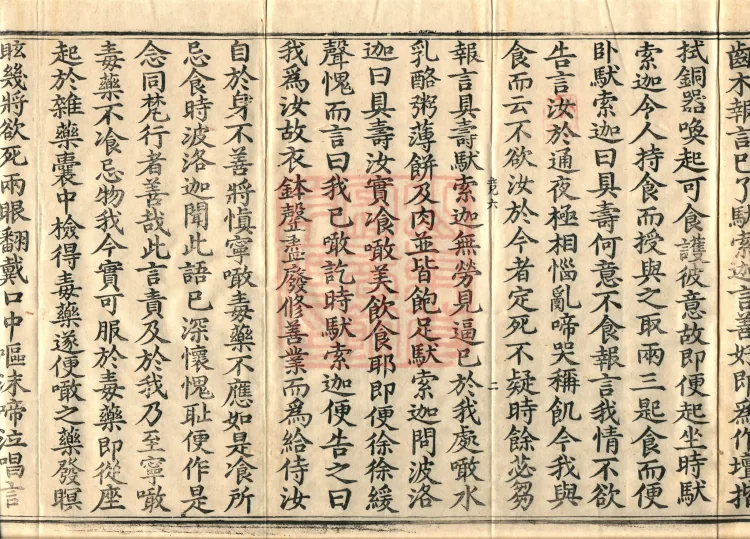 齒木報言已了馱索迦言善好即為作壇揩
拭銅器喚起可食護彼意故即便起坐時馱
索迦令人持食而授與之取兩三匙食而便
臥馱索迦曰具壽何意不食報言我情不欲
告言汝於通夜極相惱亂啼哭稱飢今我與
食而云不欲汝於今者定死不疑時餘苾芻
報言具壽馱索迦無勞見逼已於我處噉水
乳酪粥薄餅及肉並皆飽足馱索迦問波洛
迦曰具壽汝實飡噉美飲食耶即便徐徐緩
聲愧而言曰我已噉訖時馱索迦便告之曰
我為汝故衣鉢罄盡廢修善業而為給侍汝
自於身不善將慎寧噉毒藥不應如是飡所
忌食時波洛迦聞此語已深懷愧恥便作是
念同梵行者善哉此言責及於我乃至寧噉
毒藥不飡忌物我今實可服於毒藥即從座
起於雜藥囊中撿得毒藥遂便噉之藥發瞑
眩幾將欲死兩眼翻戴口中嘔沫啼泣唱言